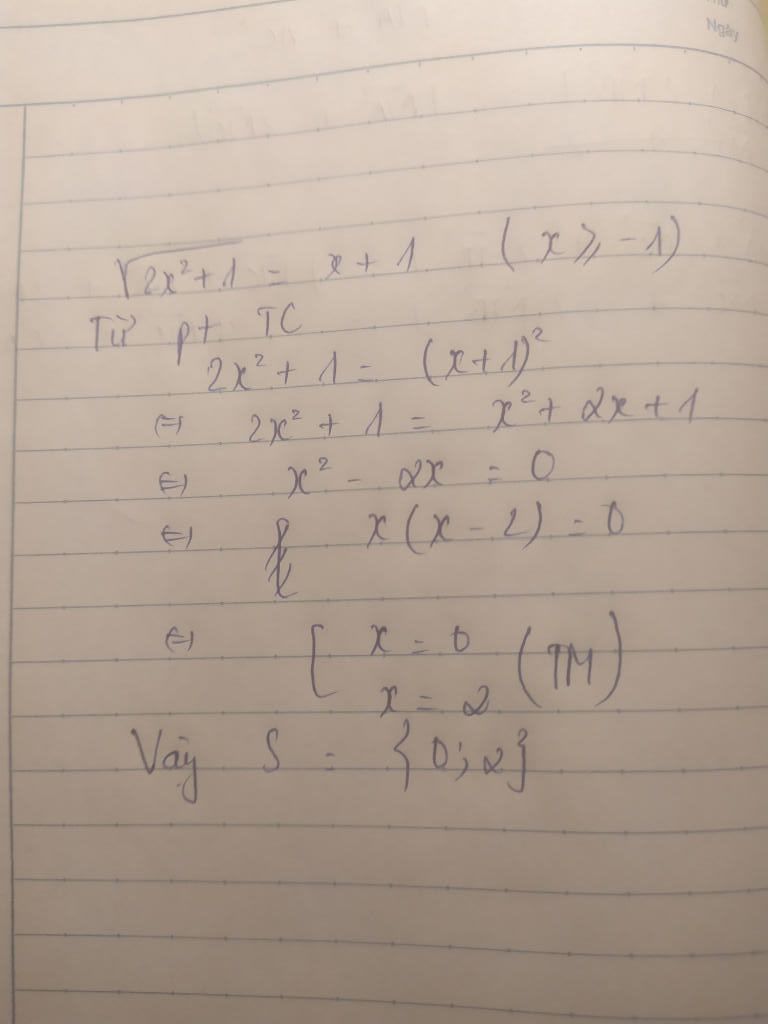 Ngày
√(2x² + 1) = x + 1 (x ⩾ -1)
Từ pt TC
2x² + 1 = (x+1)²
⇔ 2x² + 1 = x² + 2x + 1
⇔ x² - 2x = 0
⇔ x(x - 2) = 0
⇔ [ x = 0
x = 2 (TM)
Vậy S = {0; 2}